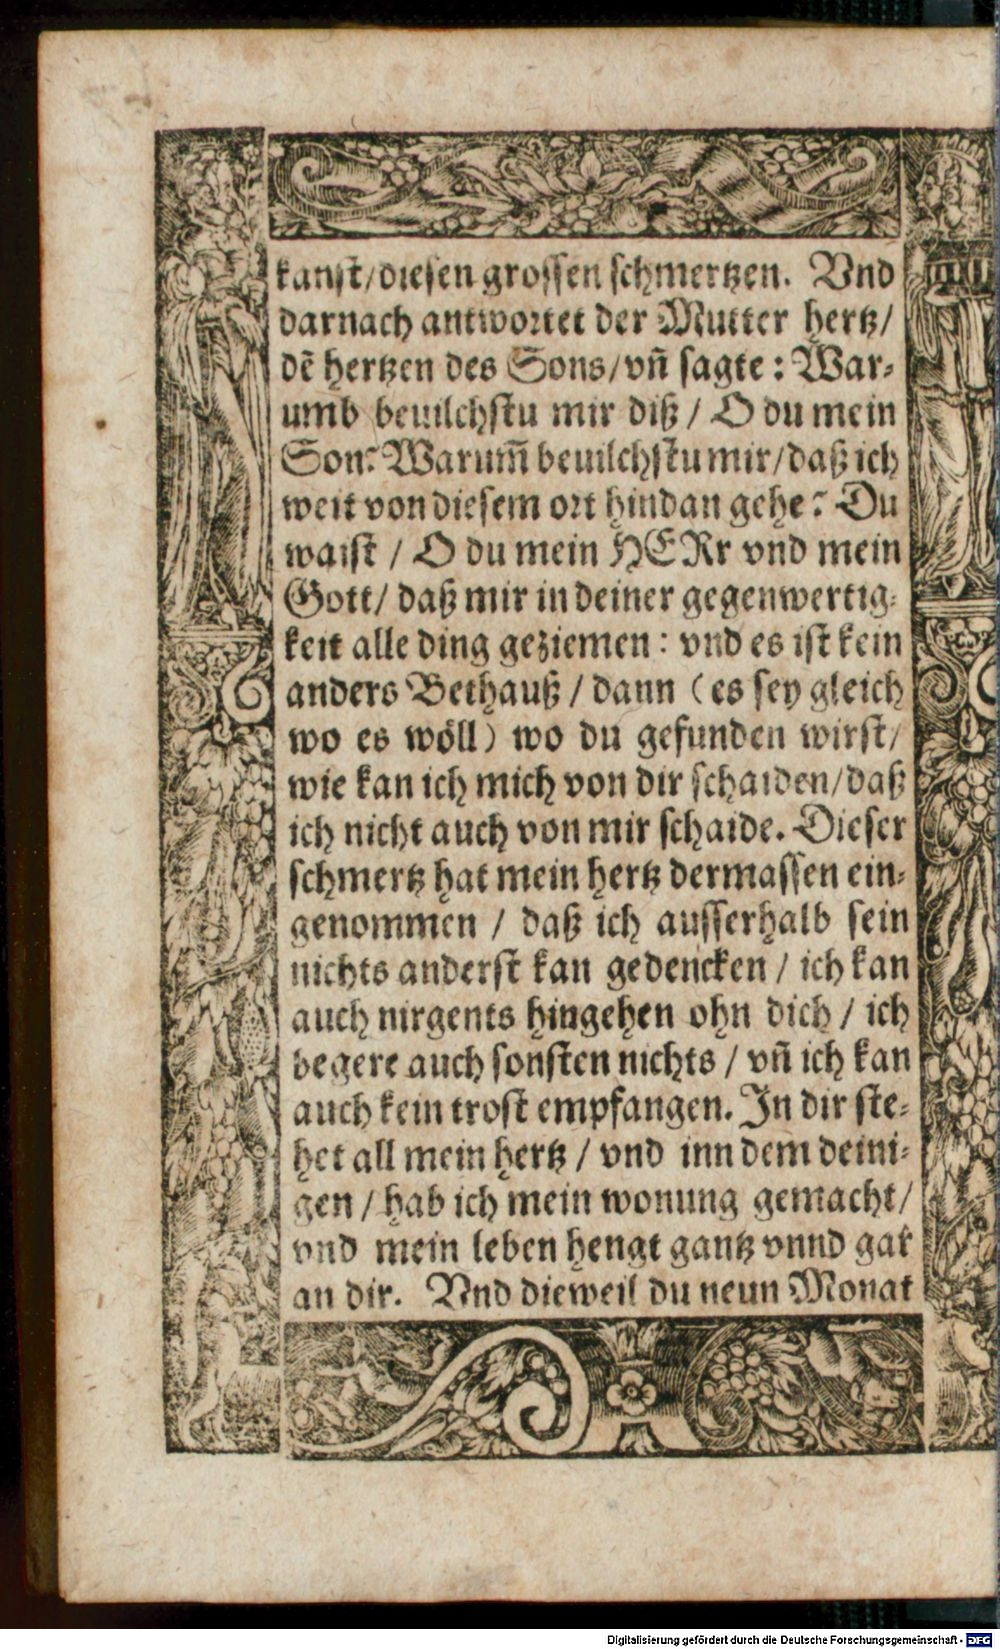 kanst/diesen grossen schmertzen. Vnd
darnach antwortet der Mutter hertz/
dē hertzen des Sons/vñ sagte: War-
umb beuilchstu mir diß / O du mein
Son? Warum̄ beuilchstu mir/daß ich
weit von diesem ort hindan gehe? Du
waist / O du mein HERr vnd mein
Gott/ daß mir in deiner gegenwertig-
keit alle ding geziemen: vnd es ist kein
anders Bethauß / dann (es sey gleich
wo es wöll) wo du gefunden wirst/
wie kan ich mich von dir schaiden/daß
ich nicht auch von mir schaide. Dieser
schmertz hat mein hertz dermassen ein-
genommen / daß ich ausserhalb sein
nichts anderst kan gedencken / ich kan
auch nirgents hingehen ohn dich / ich
begere auch sonsten nichts / vñ ich kan
auch kein trost empfangen. In dir ste-
het all mein hertz / vnd inn dem deini-
gen / hab ich mein wonung gemacht/
vnd mein leben hengt gantz vnnd gar
an dir. Vnd dieweil du neun Monat
Digitalisierung gefördert durch die Deutsche Forschungsgemeinschaft - DFG